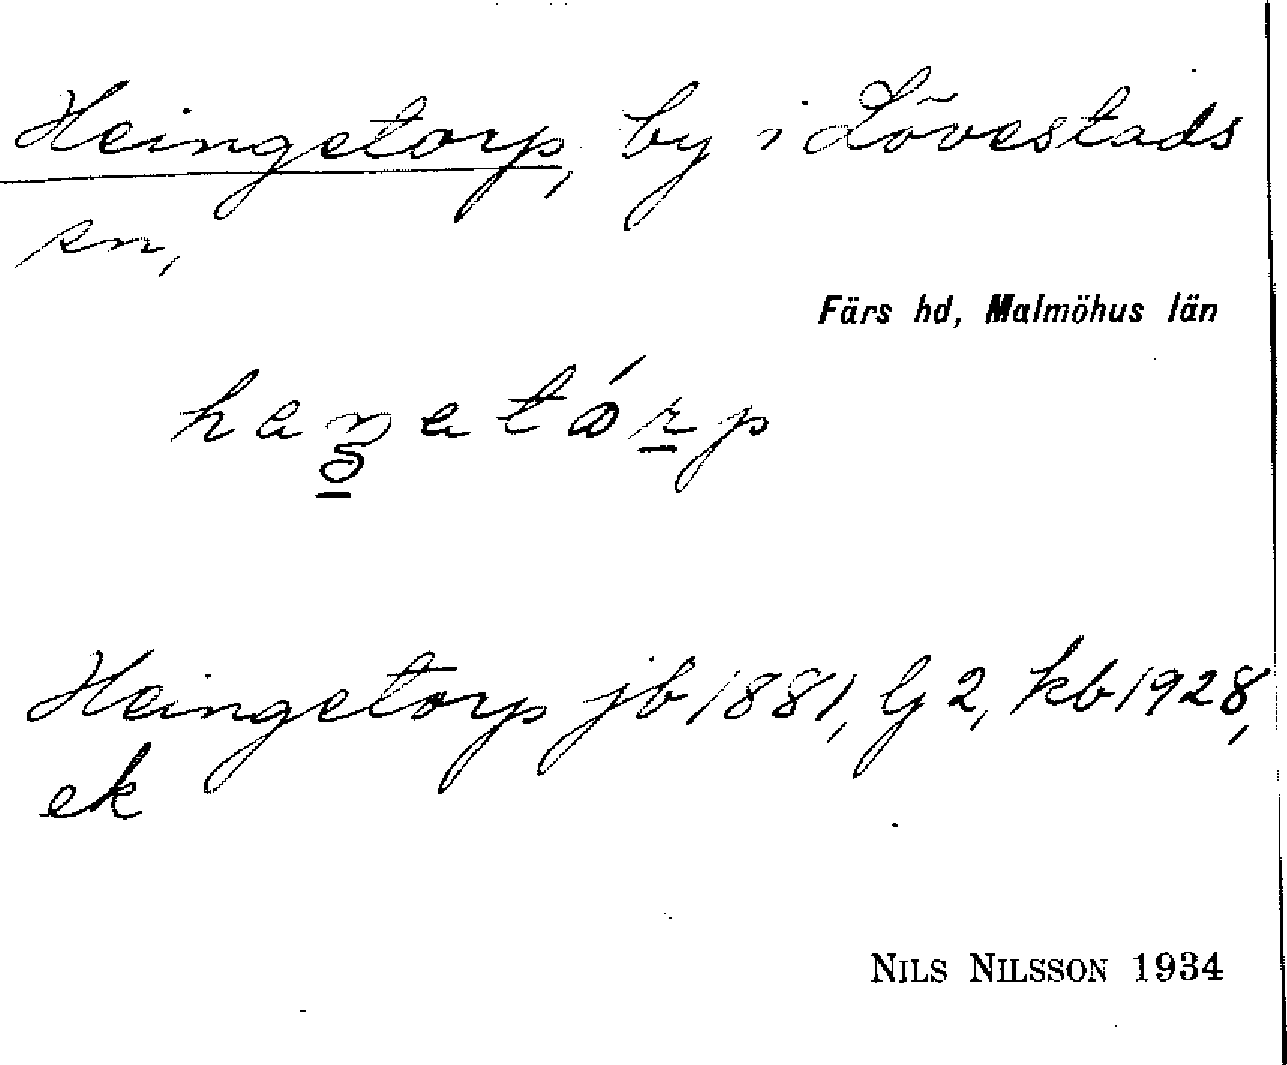 Heingetorp, by i Lövestads
sn,
Färs hd, Malmöhus län
Heingetorp jb 1881, Gj 2, kb 1928,
ek
NILS NILSSON 1934